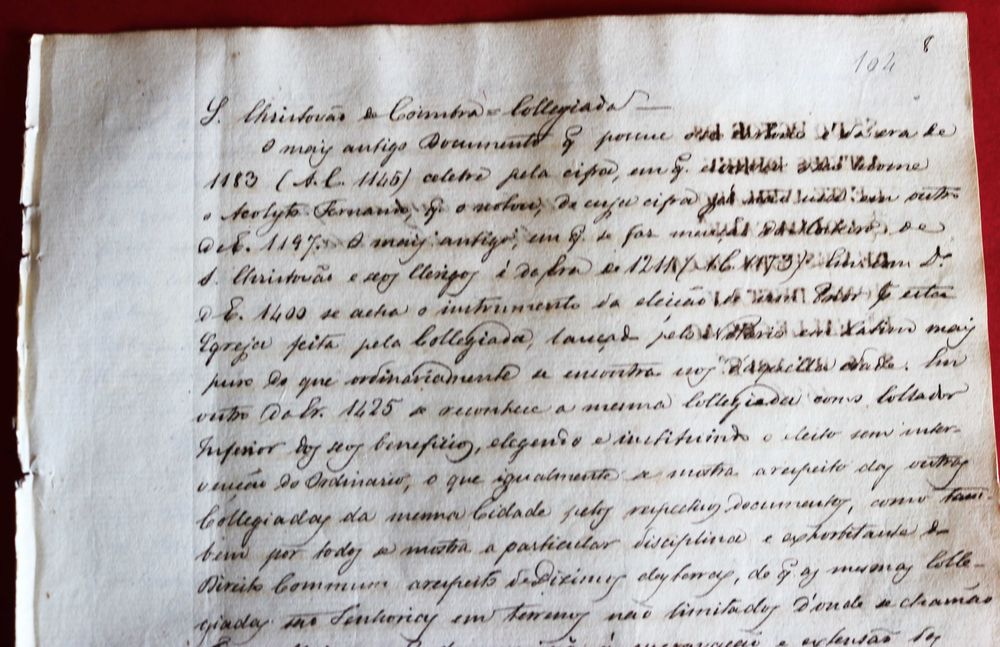 8
104
S. Christovão de Coimbra = Collegiada
O mais antigo Documento q̃ possue é da era de
1183 (A.C. 1145) celebre pela cifra, em q̃.
o Acolyto Fernando, q̃ o notou, de cuja cifra já não usou em outro
d'E. 1197. O mais antigo, em q̃. se faz menção de
S. Christovão e seos Clerigos é da Era de 1211 (A.C. 1173) Em um D.º
d'E. 1400 se acha o instrumento da eleição de um Prior p.ª esta
Egreja feita pela Collegiada, lançado pelo Notario em Latim mais
puro do que ordinariamente se encontra nos d'aquella idade. Em
outro da Er. 1425 se reconhece a mesma Collegiada como Collador
Inferior dos seos beneficios, elegendo e instituindo o eleito sem inter-
venção do Ordinario, o que igualmente se mostra a respeito das outras
Collegiadas da mesma Cidade pelos respectivos documentos, como tam
bem por todos se mostra a particular disciplina e exhorbitante do
Direito Commum a respeito de Dizimos das terras, de q̃ as mesmas Colle-
giadas são Senhorias em terrenos não limitados d'onde se chamão
e extensão dos